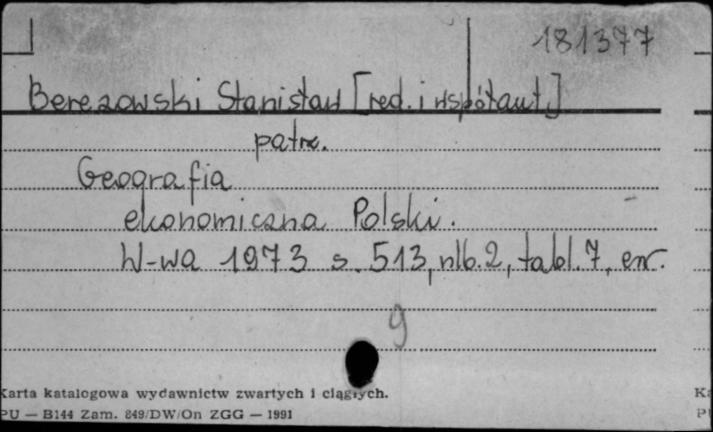 181377
Berezowski Stanisław [red. i współaut.]
patrz.
Geografia
ekonomiczna Polski.
W-wa 1973 s. 513, nlb. 2, tabl. 7, err.
9
Karta katalogowa wydawnictw zwartych i ciągłych.
PU — B144 Zam. 849/DW/On ZGG — 1991